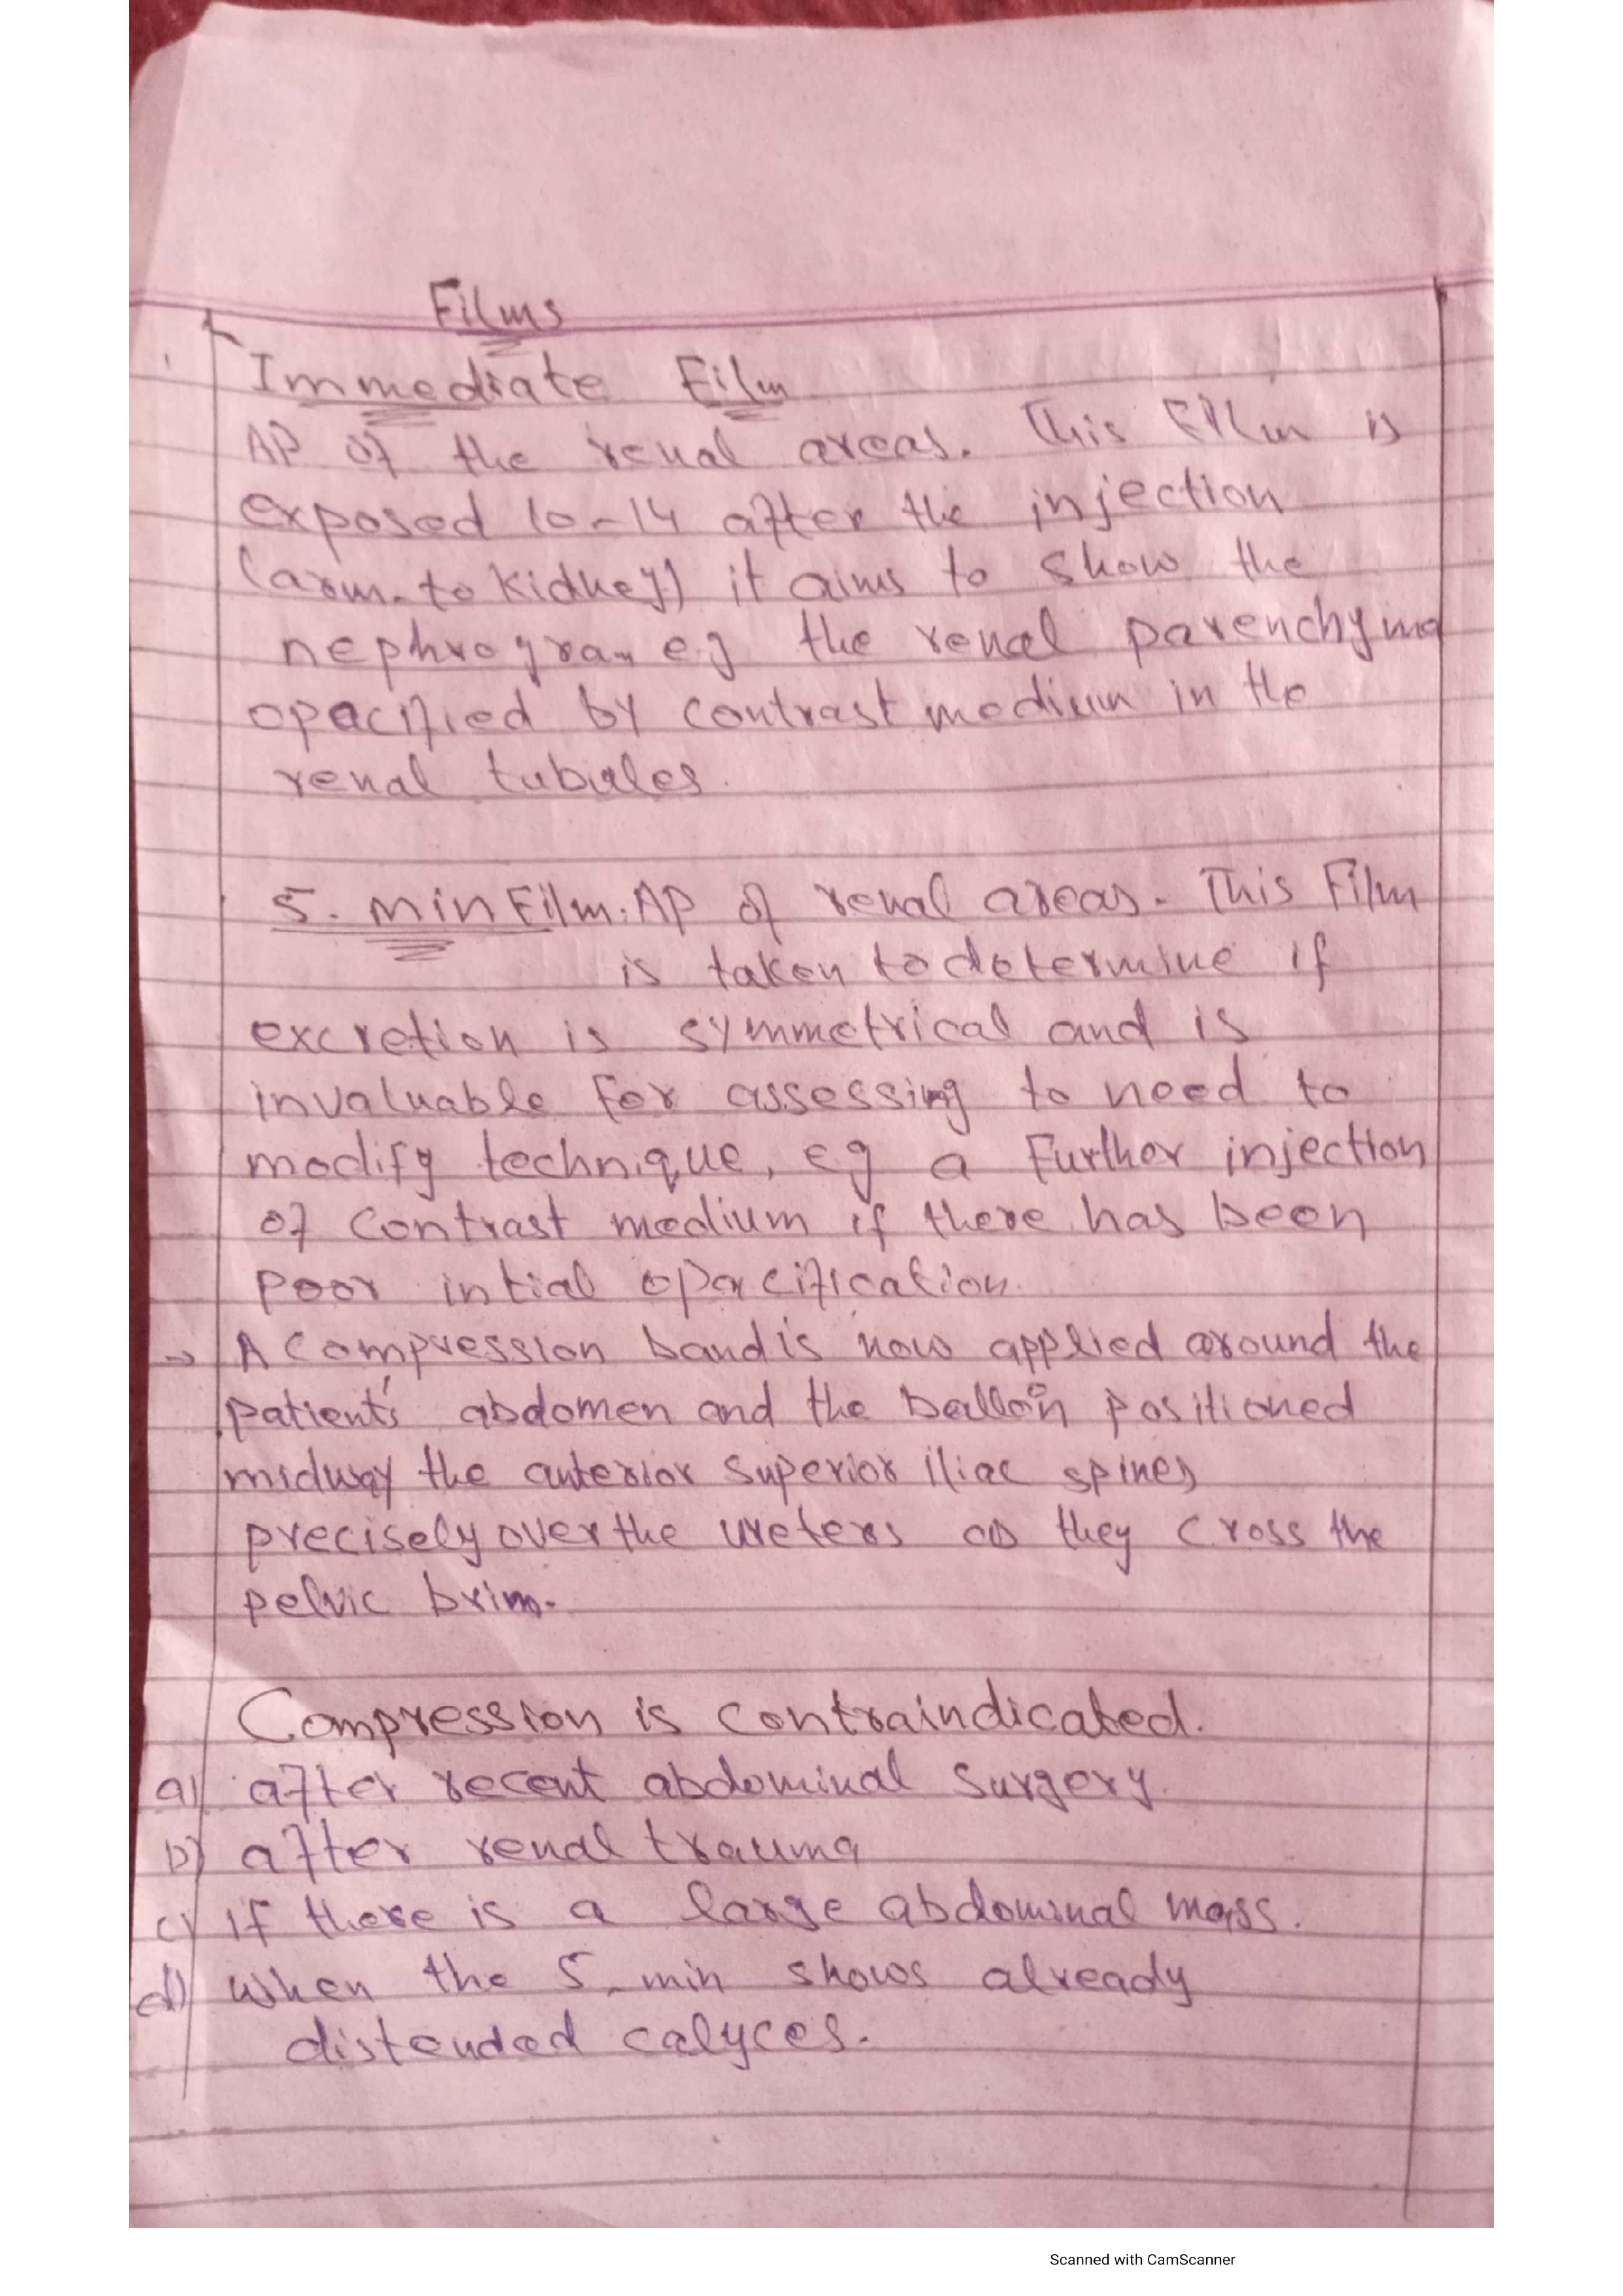 Films
Immediate Film
AP of the renal areas. This Film is
exposed 10-14 after the injection
(arm-to kidney) it aims to show the
nephrogram eg the renal parenchyma
opacified by contrast medium in the
renal tubules.
5. min Film. AP of renal areas. This Film
is taken to determine if
excretion is symmetrical and is
invaluable for assessing to need to
modify technique, eg a Further injection
of contrast medium if there has been
poor intial opacification.
→ A compression band is now applied around the
patient's abdomen and the balloon positioned
midway the anterior superior iliac spines
precisely over the ureters as they cross the
pelvic brim.
Compression is contraindicated.
a) after recent abdominal surgery.
b) after renal trauma
c) if there is a large abdominal mass.
d) when the 5-min shows already
distended calyces.
Scanned with CamScanner